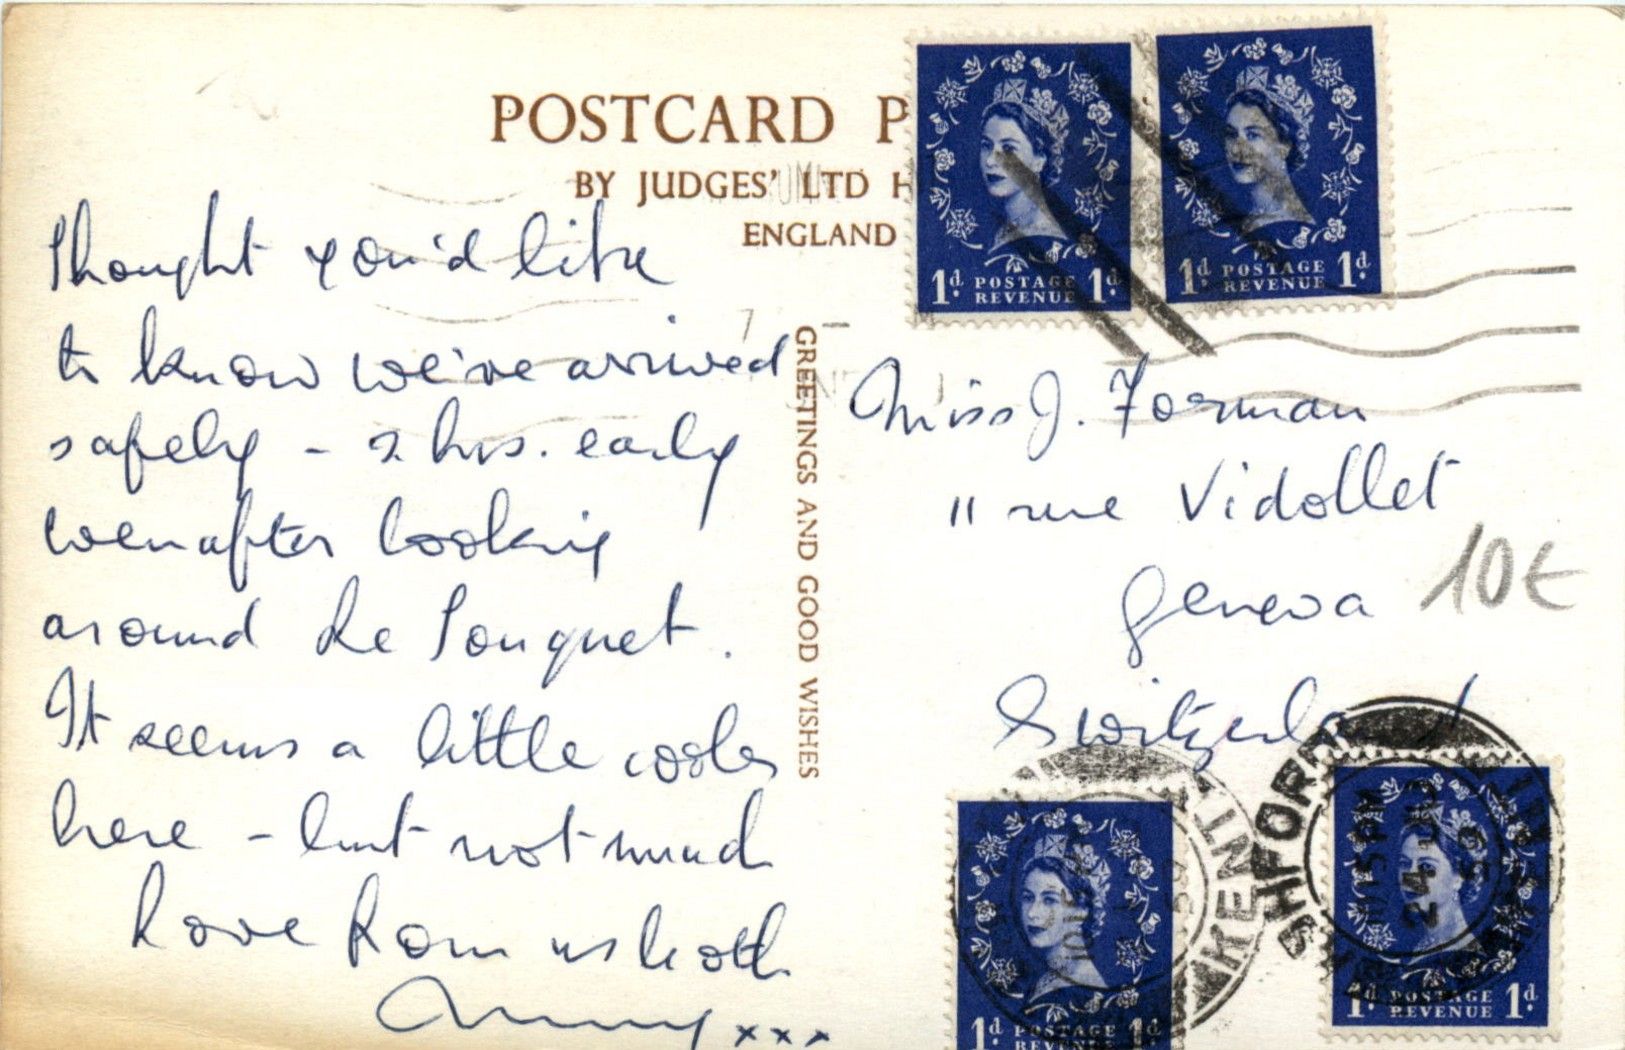 POSTCARD P
BY JUDGES' LTD H
ENGLAND
Thought you'd like
to know we've arrived
safely - 2 hrs. early
even after looking
around Le Touquet.
It seems a little cooler
here - but not much
Love from us both
xxx
GREETINGS AND GOOD WISHES
Miss J. Forman
11 rue Vidollet
Geneva
Switzerland
10€
1d POSTAGE 1d
REVENUE
1d POSTAGE 1d
REVENUE
1d POSTAGE 1d
REVENUE
1d POSTAGE 1d
REVENUE
KENT
ASHFORD
1115PM
24 JU
59